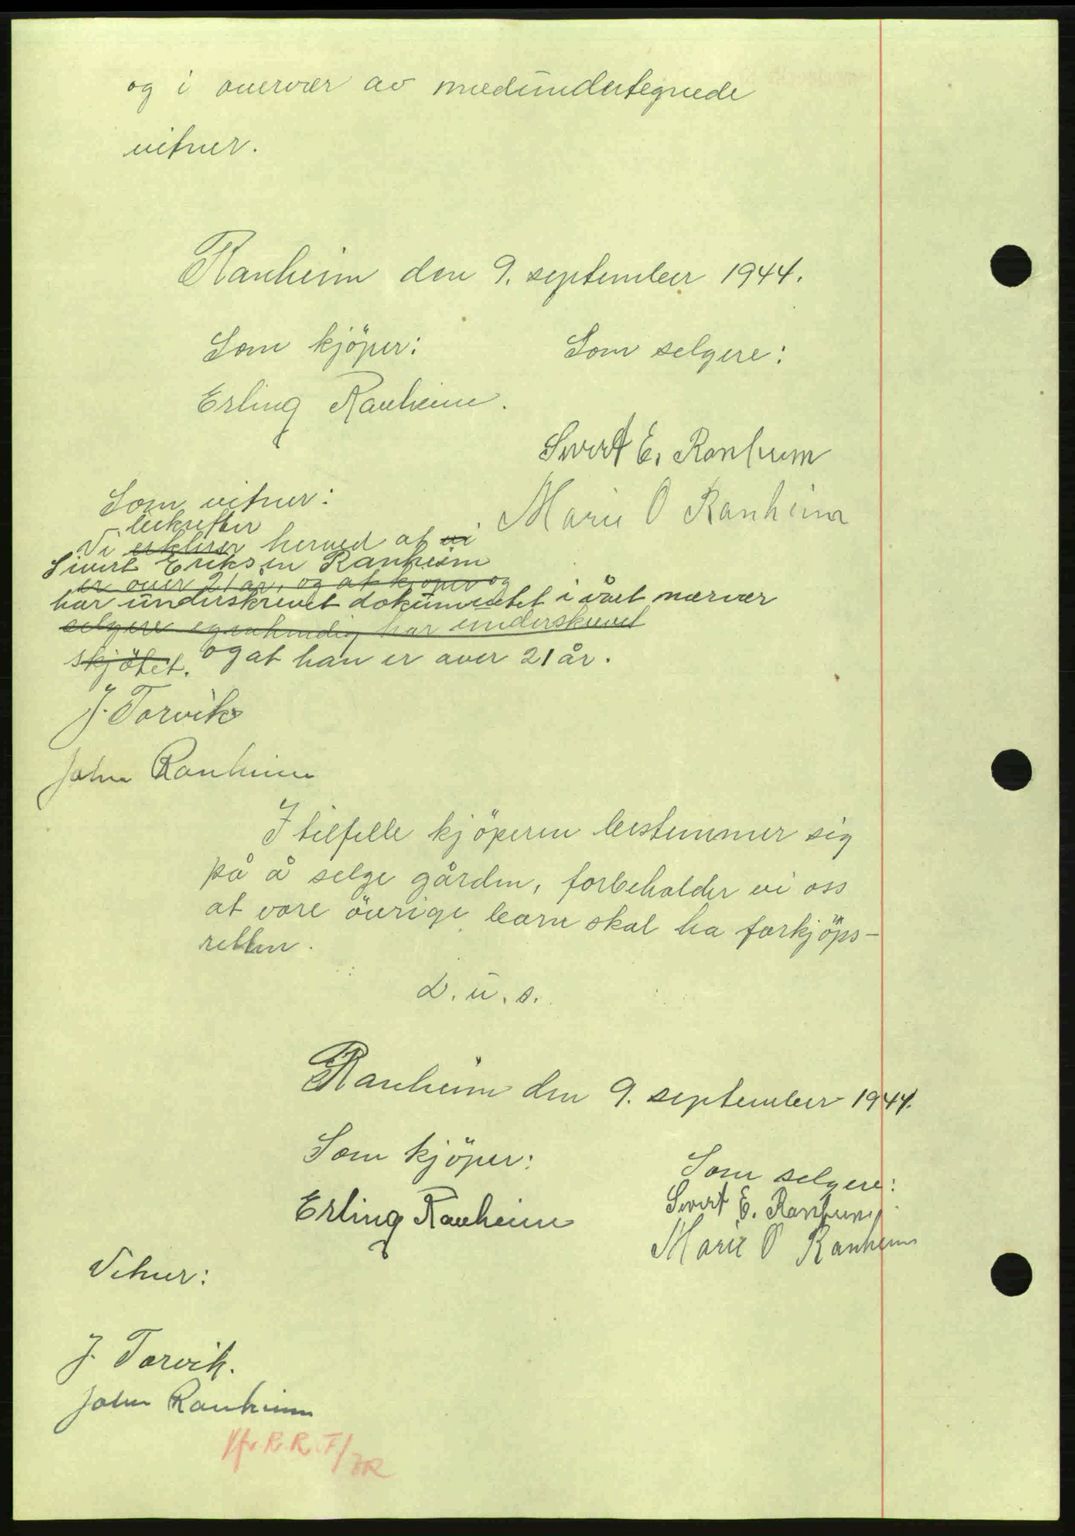 og i overvær av medundertegnede
vitner.
Ranheim den 9. september 1944.
Som kjöper:
Som selgere:
Erling Ranheim.
Sivert E. Ranheim
Marie O Ranheim
Som vitner:
bekrefter
Vi erklærer herved at vi
Sivert Eriksen Ranheim
er over 21 år, og at kjöper og
har underskrevet dokumentet i vårt nærvær
selgere egenhendig har underskrevet
skjötet. og at han er over 21 år.
J. Torvik
John Ranheim
I tilfelle kjöperen bestemmer sig
på å selge gården, forbeholder vi oss
at våre övrige barn skal ha forkjöps-
retten.
D. u. s.
Ranheim den 9. september 1944.
Som kjöper:
Som selgere:
Erling Ranheim
Sivert E. Ranheim
Marie O Ranheim
Vitner:
J. Torvik.
John Ranheim